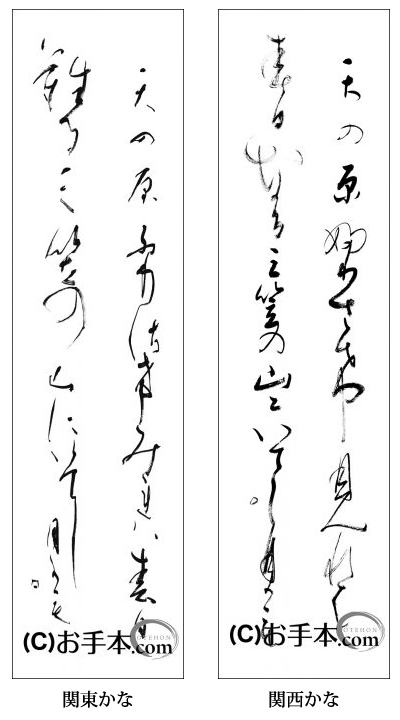 天の原ふりさけみれハ春日
なる三笠の山にいてし月かも
(C)お手本.com
OTEHON
関東かな
天の原ふりさけ見れは
春日なる三笠の山にいてし月かも
(C)お手本.com
OTEHON
関西かな